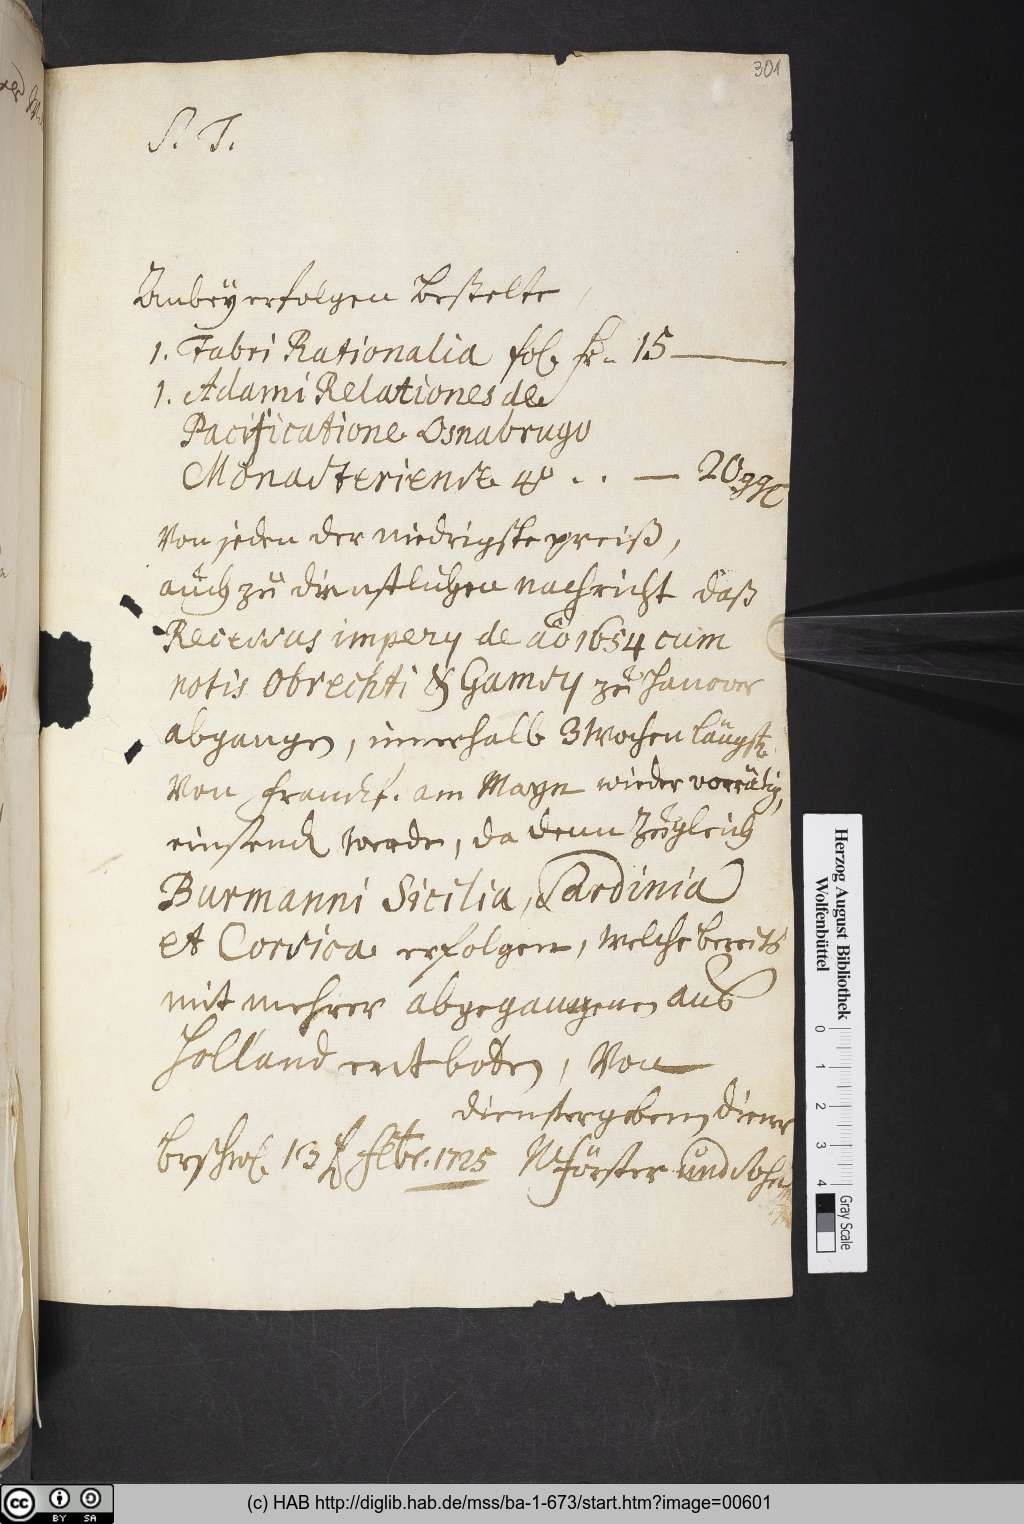 301
S. T.
Anbey erfolgen bestelte,
1. Fabri Rationalia fol. 15 —
1. Adami Relationes de
Pacificatione Osnabrugo
Monasteriense 4º . . — 20 ggl
Von jeden der niedrigste preiß,
auch zu dienstlichen nachricht daß
Recessus impery de aō 1654 cum
notis Obrechti & Gamsy zu Hanover
abgangen, innerhalb 3 Wochen längst.
Von Franckf. am Mayn wieder vorrätig,
einsend werde, da denn zugleich
Burmanni Sicilia, Sardinia
et Corsica erfolgen, welche bereits
mit mehrer abgegangenen aus
Holland entboten, Von
dienstergebenen diener
brschw. 13 febr. 1725 N Förster und Sohn
Herzog August Bibliothek
Wolfenbüttel
0 1 2 3 4
Gray Scale
cc BY SA
(c) HAB http://diglib.hab.de/mss/ba-1-673/start.htm?image=00601